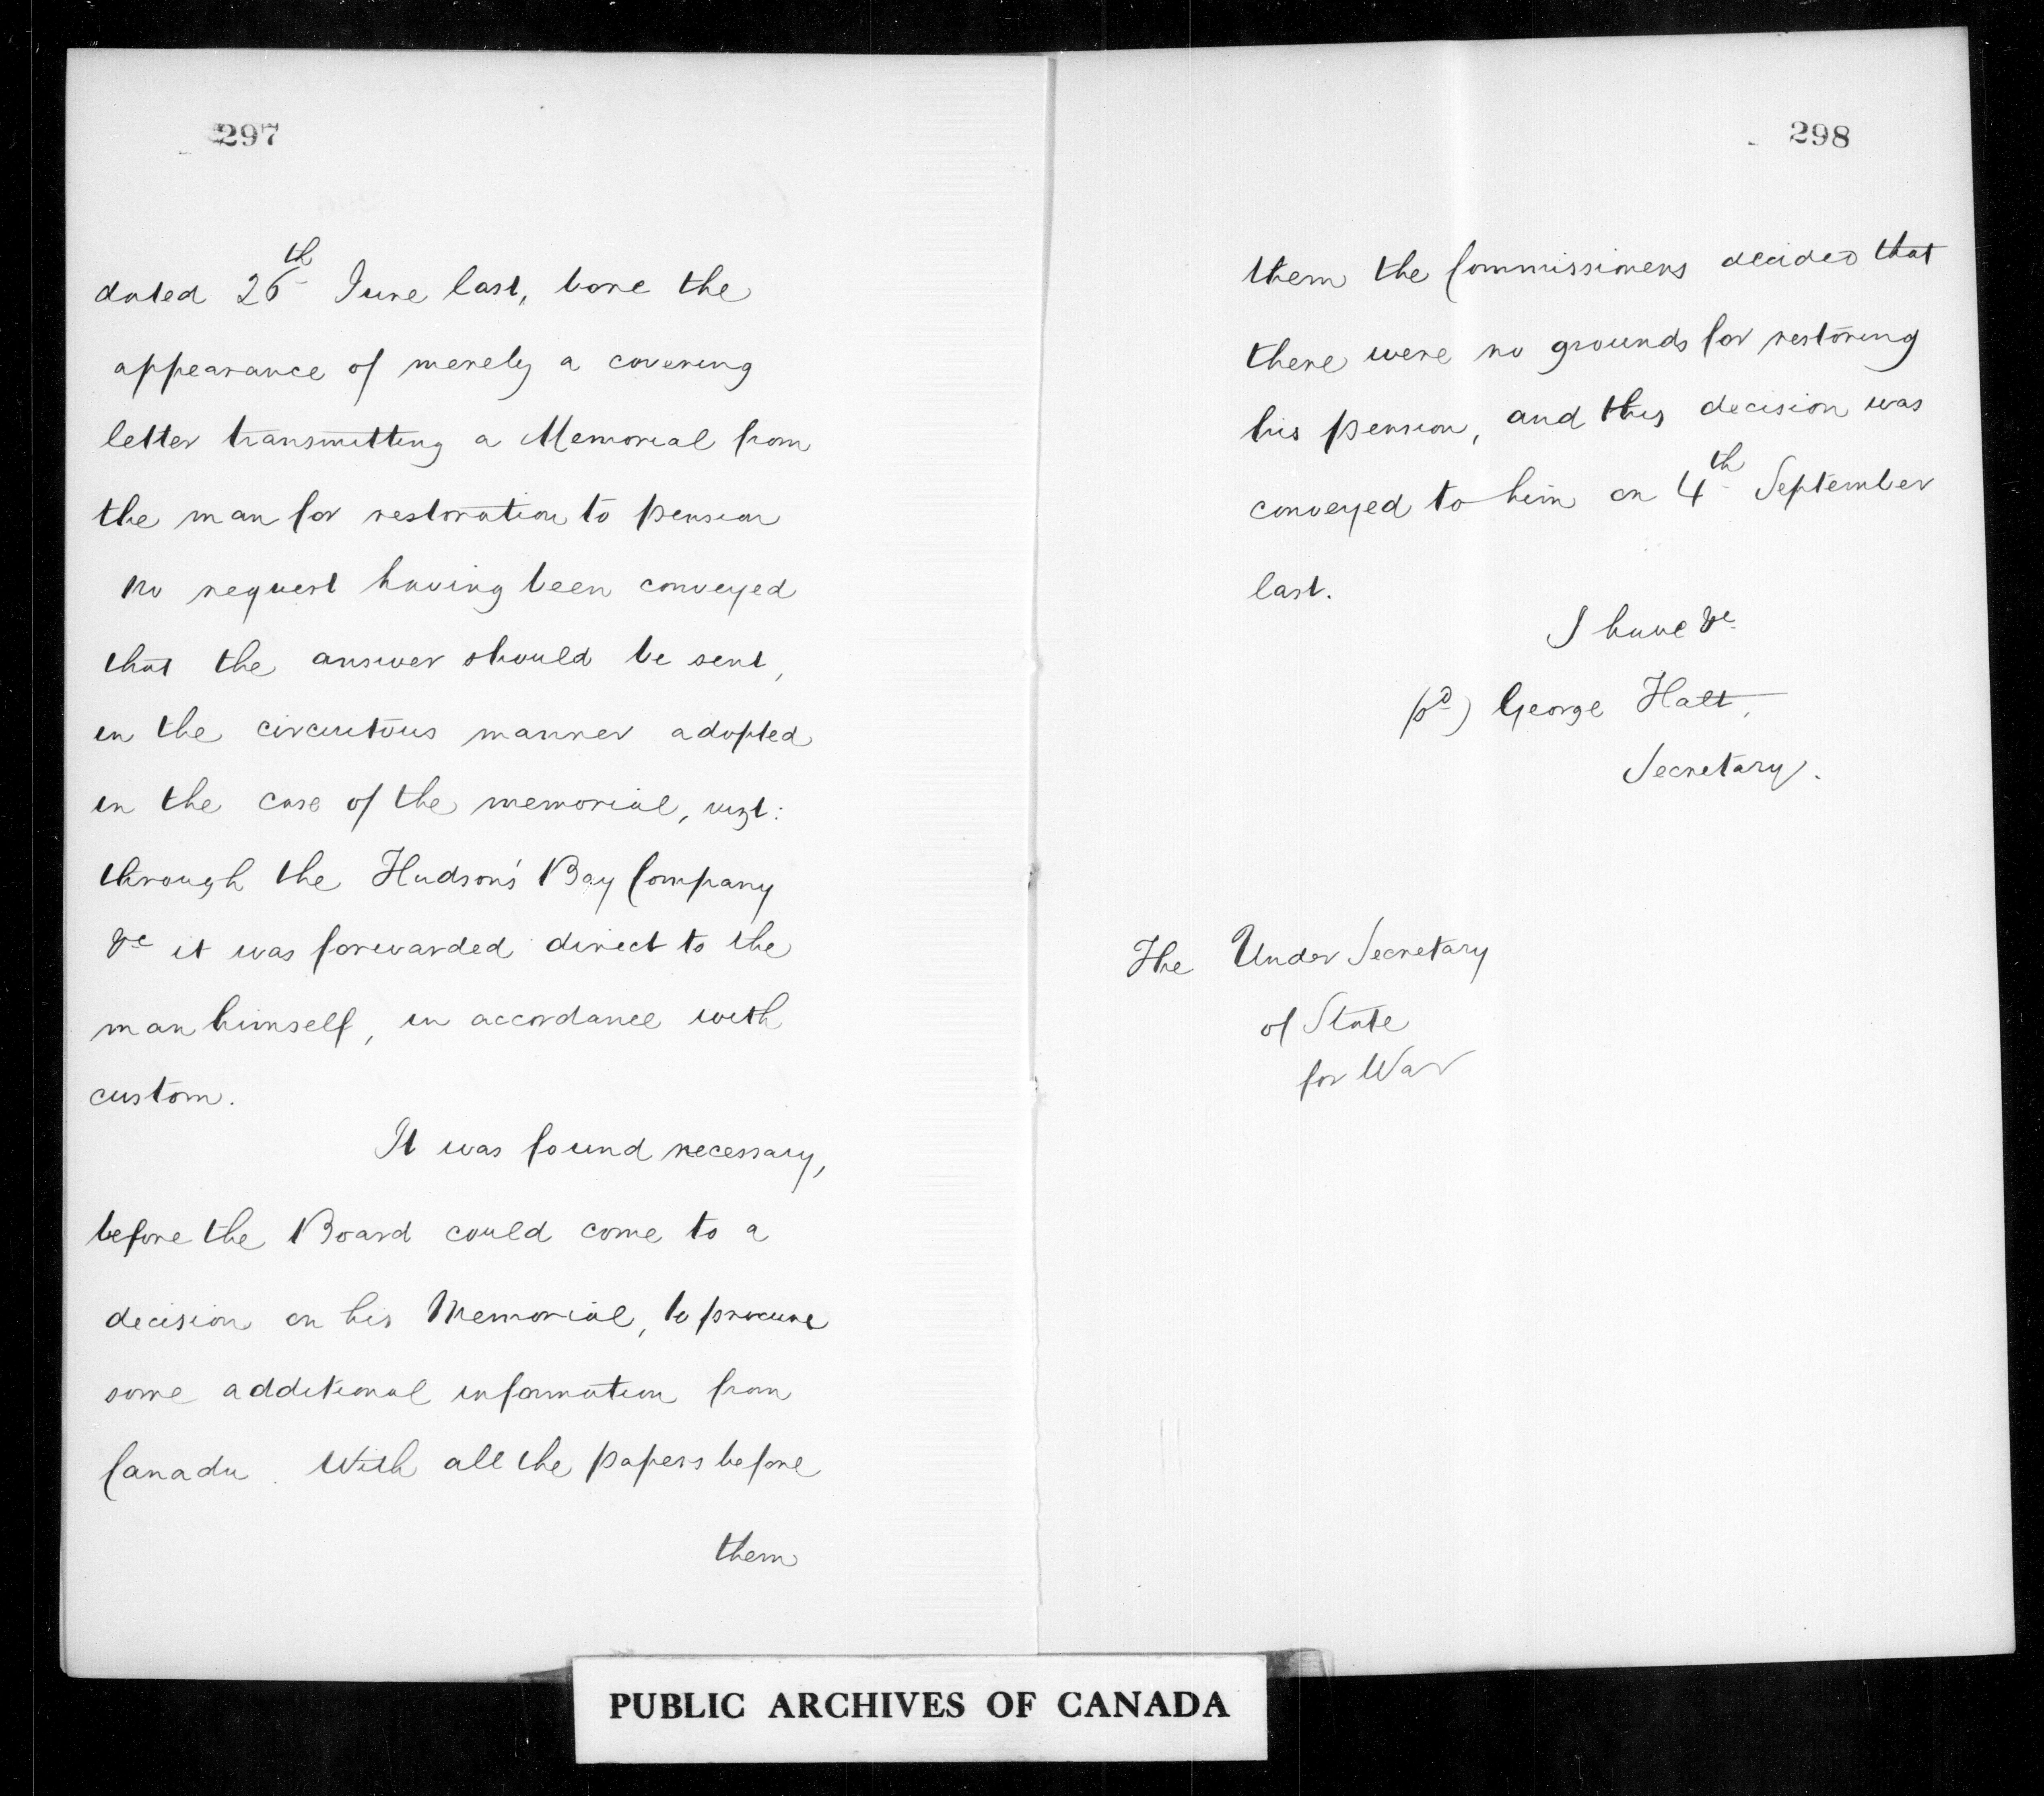 297
dated 26th June last, bore the
appearance of merely a covering
letter transmitting a Memorial from
the man for restoration to pension
no request having been conveyed
that the answer should be sent,
in the circuitous manner adopted
in the case of the memorial, vizt:
through the Hudson's Bay Company
&c it was forwarded direct to the
man himself, in accordance with
custom.
It was found necessary,
before the Board could come to a
decision on his Memorial, to procure
some additional information from
Canada. With all the papers before
them
298
them the Commissioners decided that
there were no grounds for restoring
his pension, and this decision was
conveyed to him on 4th September
last.
I have &c
(sd) George Halt,
Secretary.
The Under Secretary
of State
for War
PUBLIC ARCHIVES OF CANADA